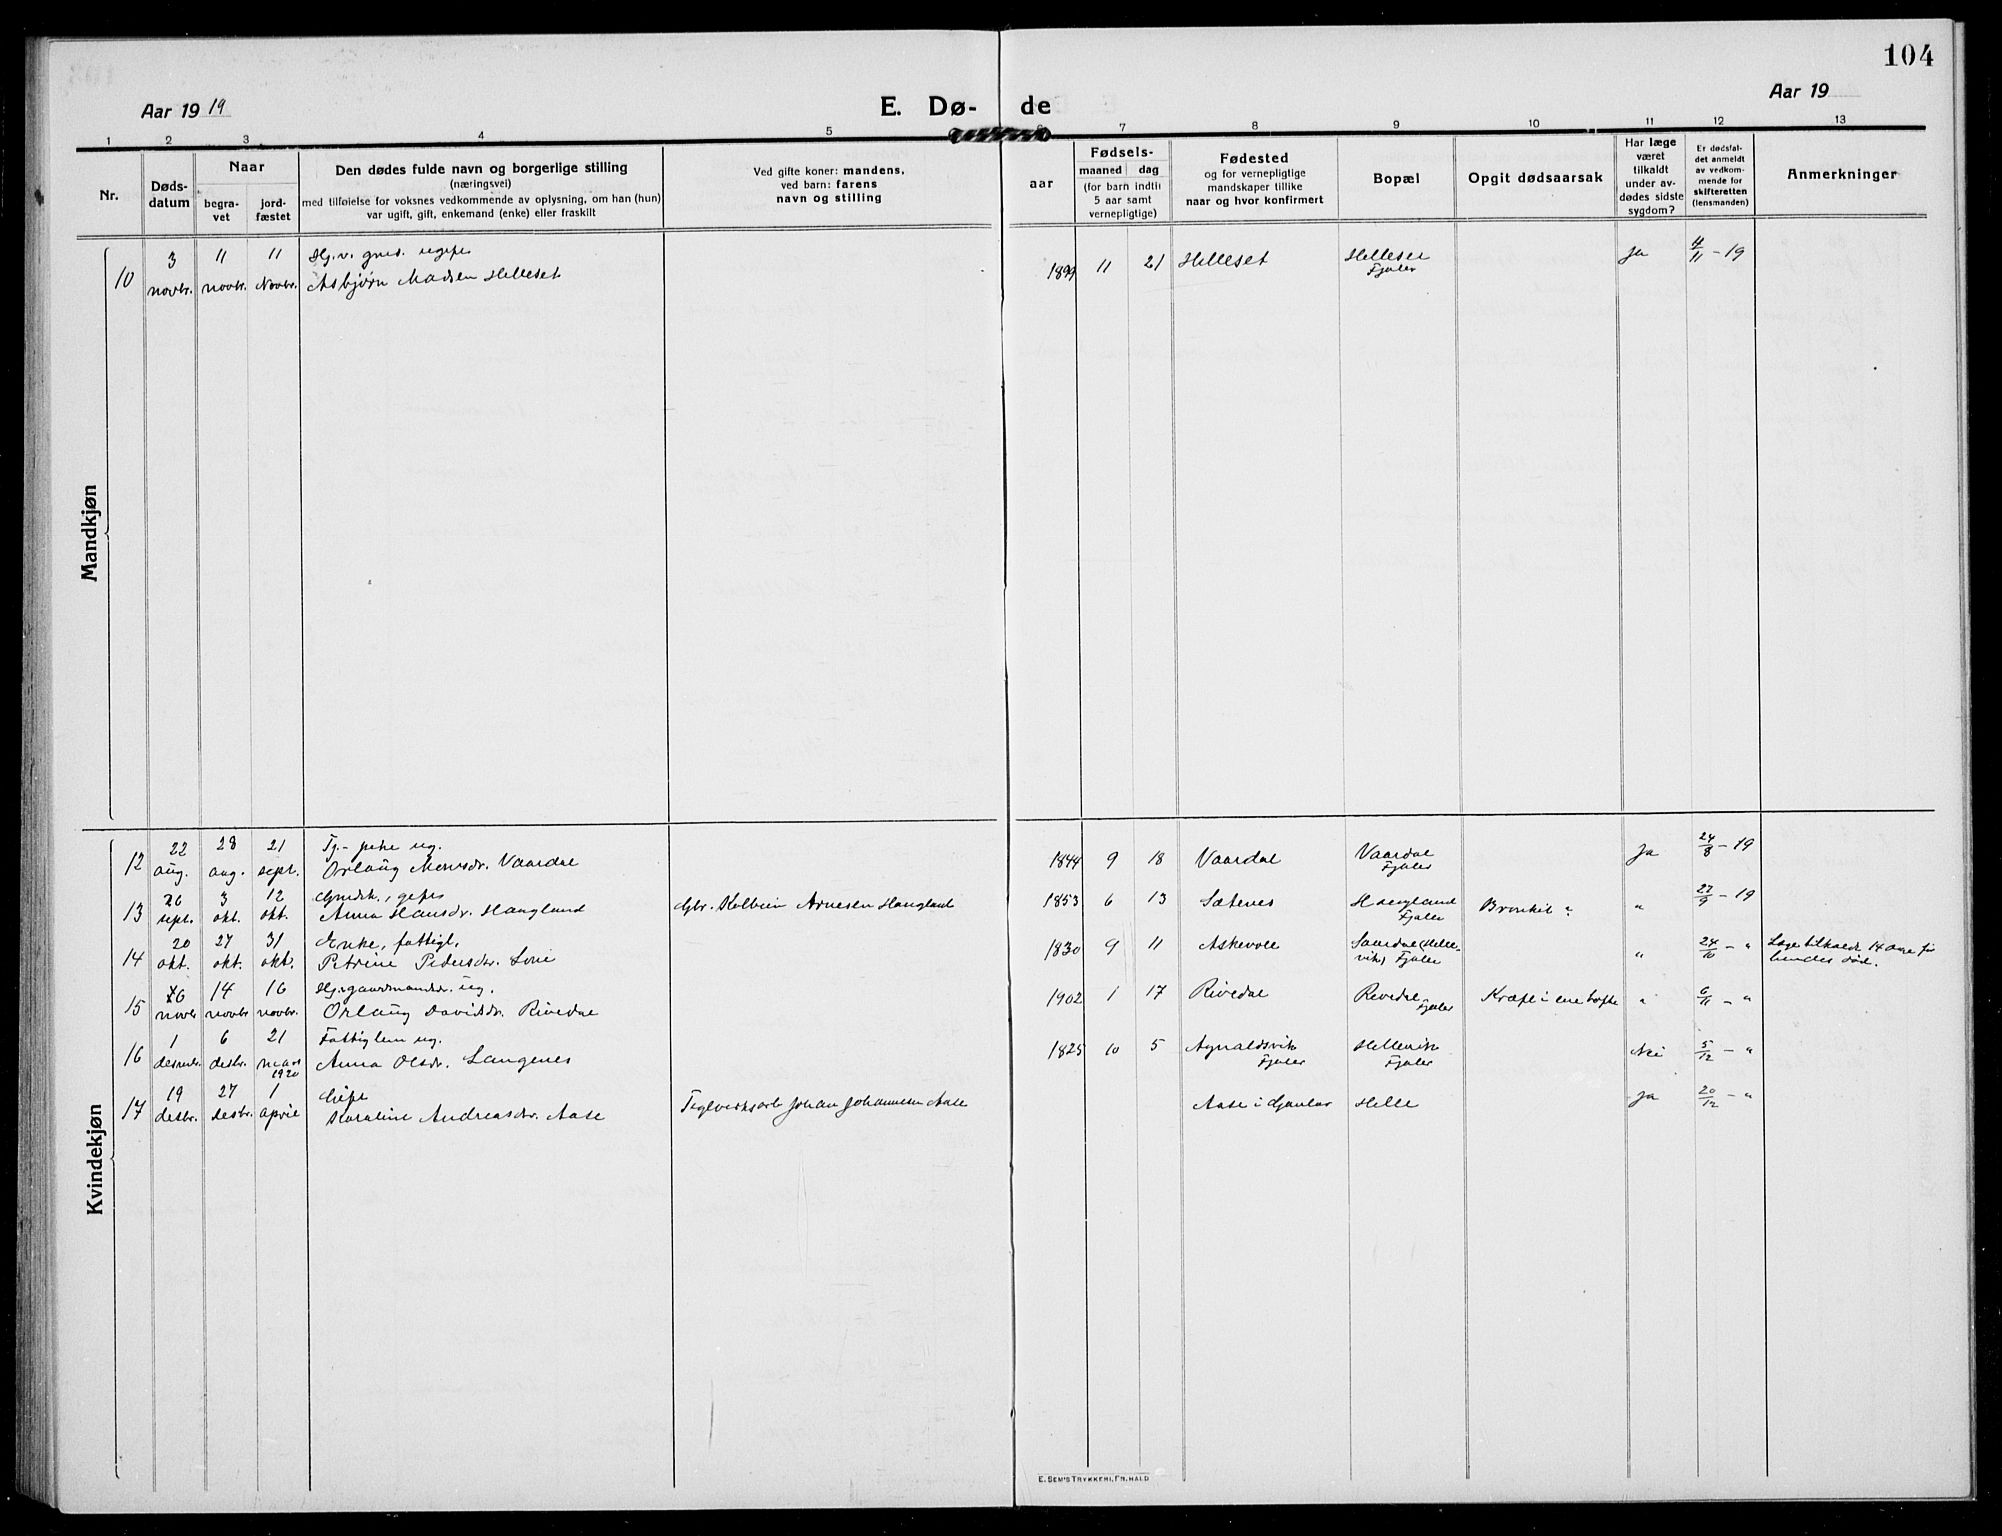 104
Aar 1919
E. Dø-
de
Aar 19
1 2 3 4 5 6 7 8 9 10 11 12 13
Nr.
Døds-
datum
Naar
begra-
vet
jord-
fæstet
Den dødes fulde navn og borgerlige stilling
(næringsvei)
med tilføielse for voksnes vedkommende av oplysning, om han (hun)
var ugift, gift, enkemand (enke) eller fraskilt
Ved gifte koner: mandens,
ved barn: farens
navn og stilling
aar
Fødsels-
maaned dag
(for barn indtil
5 aar samt
vernepligtige)
Fødested
og for vernepligtige
mandskaper tillike
naar og hvor konfirmert
Bopæl
Opgit dødsaarsak
Har læge
været
tilkaldt
under av-
dødes sidste
sygdom?
Er dødsfal-
det anmeldt
av vedkom-
mende for
skifteretten
(lensmanden)
Anmerkninger
Mandkjøn
3 11 11 Hj. v. gmd. ugift
10 novbr. novbr. Novbr. Asbjørn Madsen Helleset
1899 11 21 Helleset Helleset Ja 4/11 - 19
Fjaler
Kvindekjøn
22 28 21 Tj.- ug.
12 aug. aug. sept. Orlaug Monsdr. Vaardal
1844 9 18 Vaardal Vaardal Ja 24/8 - 19
Fjaler
26 3 12 Gmdk., gift
13 sept. okt. okt. Anna Hansdr. Haugland Gbr. Kolbein Arnesen Haugland
1853 6 13 Sætenes Haugland Bronkit " 27/9 - 19
Fjaler
20 27 31 Enke, fattigl.
14 okt. okt. okt. Petrine Pedersdr. Loni
1830 9 11 Askevoll (Helle- " 24/10 - " Læge tilkaldt 14 dage før
vik) Fjaler hendes død.
6 14 16 Hj. gaardmandsdr. ug.
15 novbr novbr novbr. Orlaug Davidsdr. Rivedal
1902 1 17 Rivedal Rivedal Kræft i ene hofte " 6/11 - "
Fjaler
1 6 21 Fattiglem ug.
16 desembr. desbr. mars Anna Olsdr. Langenes
1920
1825 10 5 Agnaldsvik Hellevik Nei 5/12 - "
Fjaler Fjaler
19 27 1 Gift
17 desbr. desbr. april Karoline Andreasdr. Aase Teglverksarb. Johan Johannesen Aase
Aase i Gaular Helle Ja 20/12 - "
E. SEM'S TRYKKERI, FR.HALD